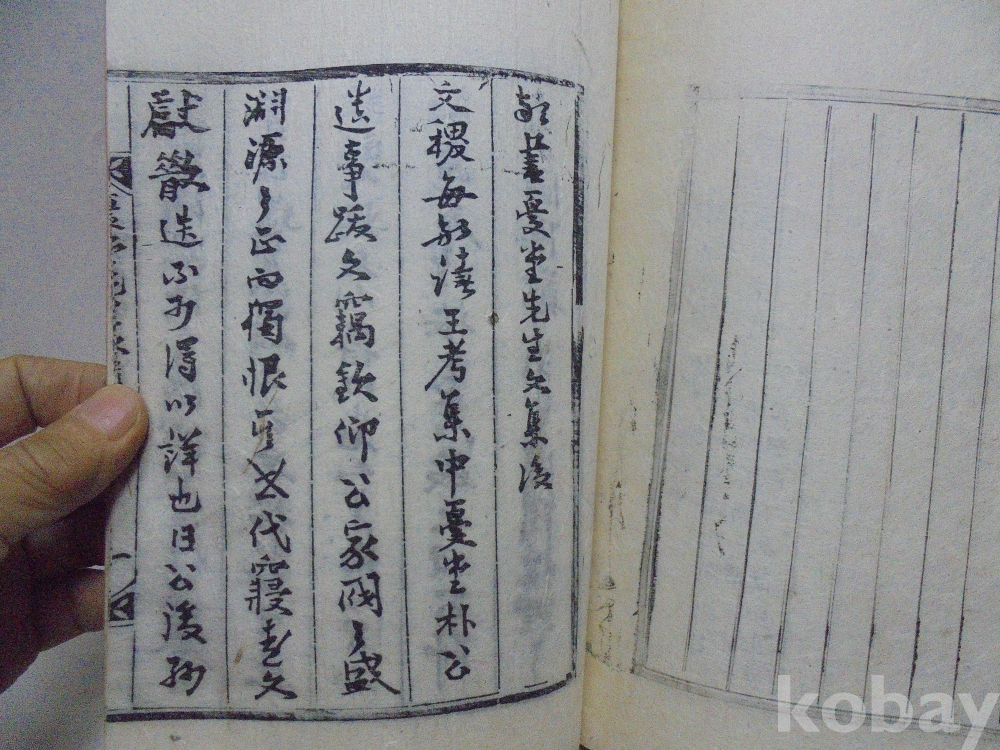 敬書憂堂先生文集後
文稷每敬讀王考集中憂堂朴公
遺事跋文竊欽仰公家閥之盛
淵源之正而獨恨世代寢遠文
獻散迭不可得以詳也日公後孫
一
kobay